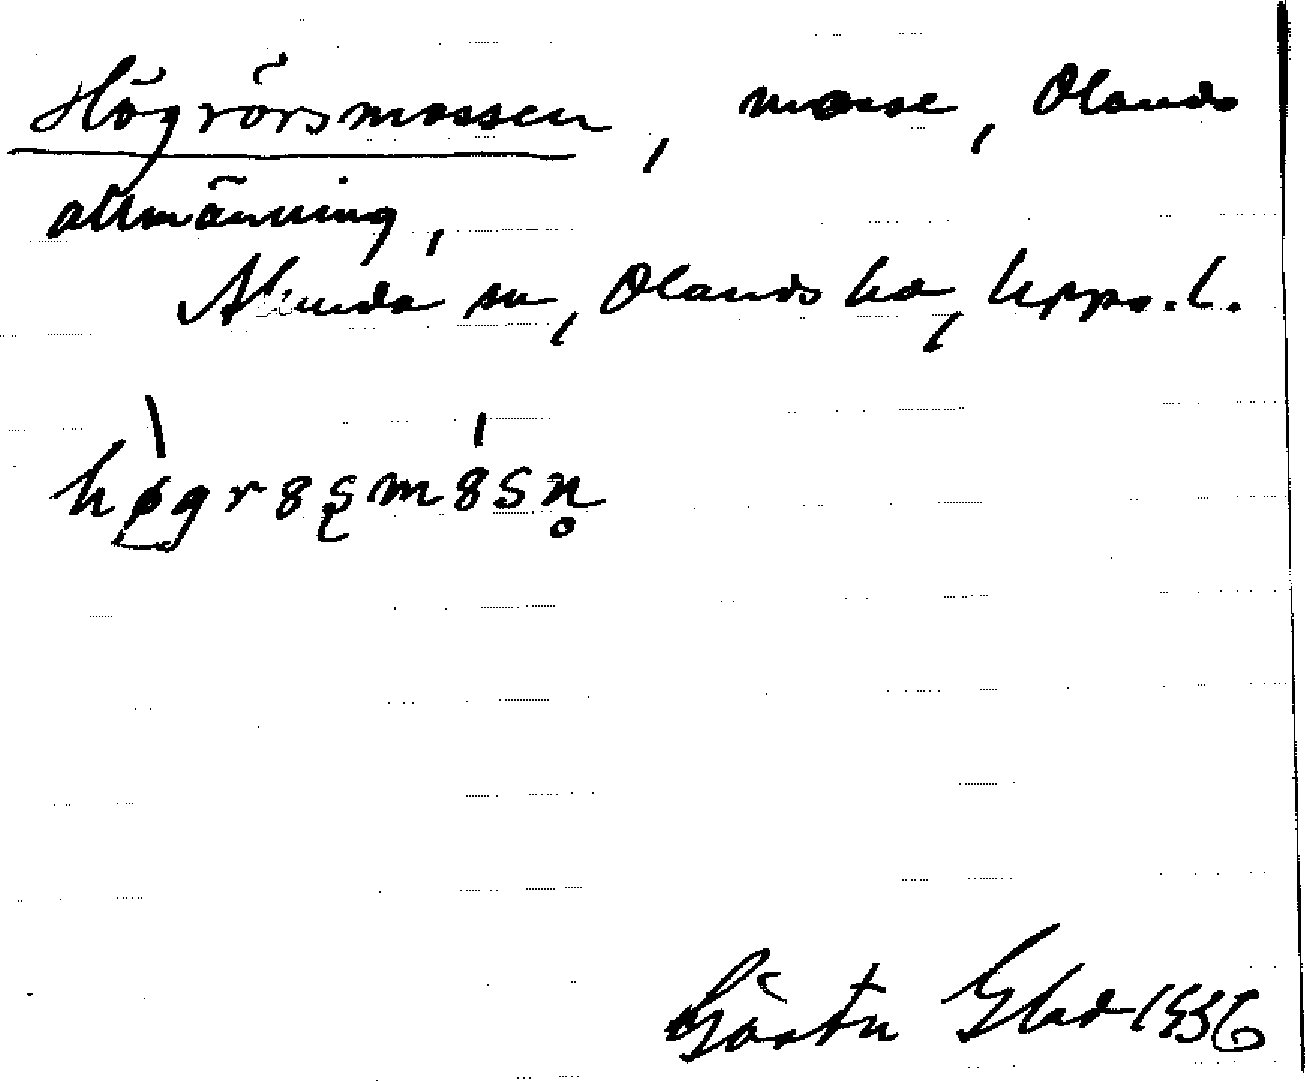 Högrörsmossen, mosse, Olands
allmänning,
Alunda sn, Olands hd, Upps. l.
høgr8sm8sn̥
Gösta Glad 1936